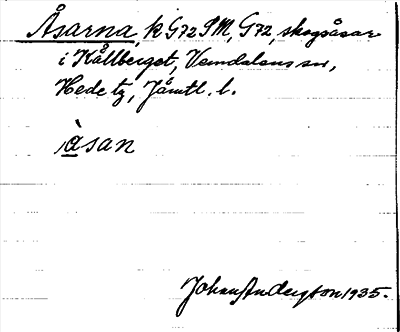 Åsarna, k G72 SM, G72, skogsåsar
i Kållberget, Vemdalens sn,
Hede tg, Jämtl. l.
àsan
Johan Andersson 1935.